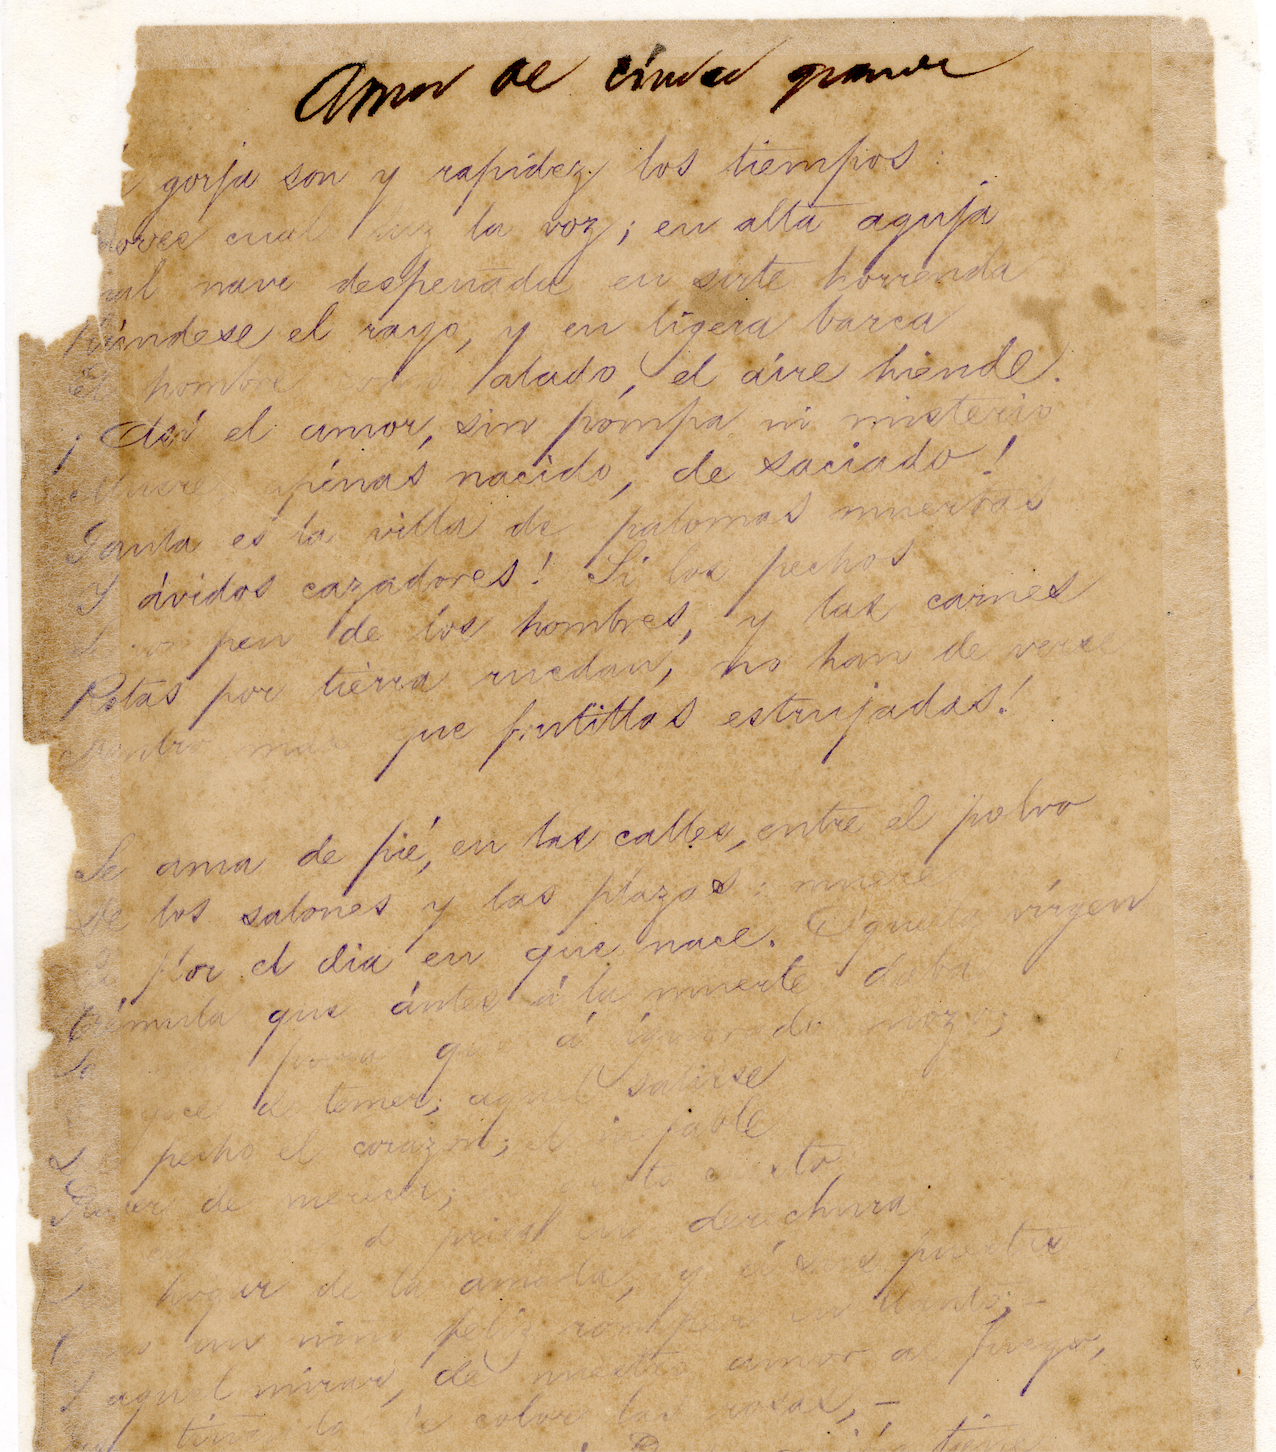 Amor de ciudad grande
gorja son y rapidez los tiempos:
cual luz la voz; en alta aguja
cual nave despeñada en sirte horrenda
Húndese el rayo, y en ligera barca
El hombre como alado, el aire hiende.
¡Así el amor, sin pompa ni misterio
Muere, apénas nacido, de saciado!
Jaula es la villa de palomas muertas
Y ávidos cazadores! Si los pechos
Se rompen de los hombres, y las carnes
Rotas por tierra ruedan, no han de verse
Dentro mas que frutillas estrujadas!
Se ama de pié, en las calles, entre el polvo
De los salones y las plazas: muere
La flor el dia en que nace. Aquella vírgen
Trémula que ántes á la muerte daba
pura que á ignorado mozo;
goce de temer; aquel salirse
Del pecho el corazon; el inefable
Placer de merecer; el grato susto
de prisa en derechura
hogar de la amada, y á sus puertas
Como un niño feliz romper en llanto;–
Y aquel mirar, de nuestro amor al fuego,
tiñendo de color las rosas,–